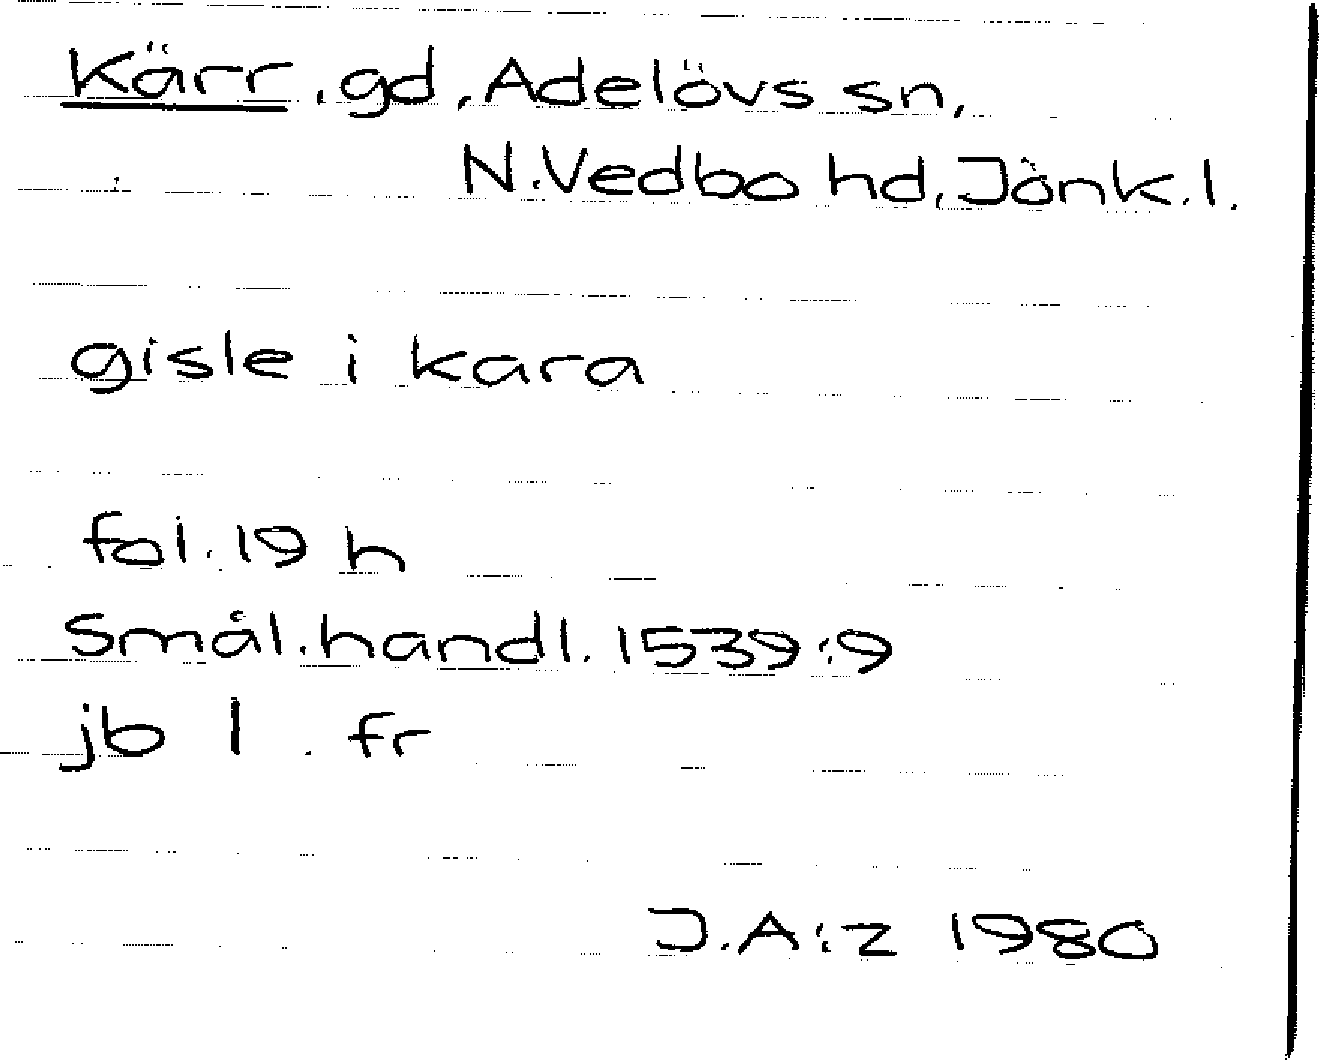 Kärr, gd, Adelövs sn,
N. Vedbo hd, Jönk. l.
gisle i kara
fol. 19 h
Smål. handl. 1539:9
jb 1. fr
J.A:z 1980